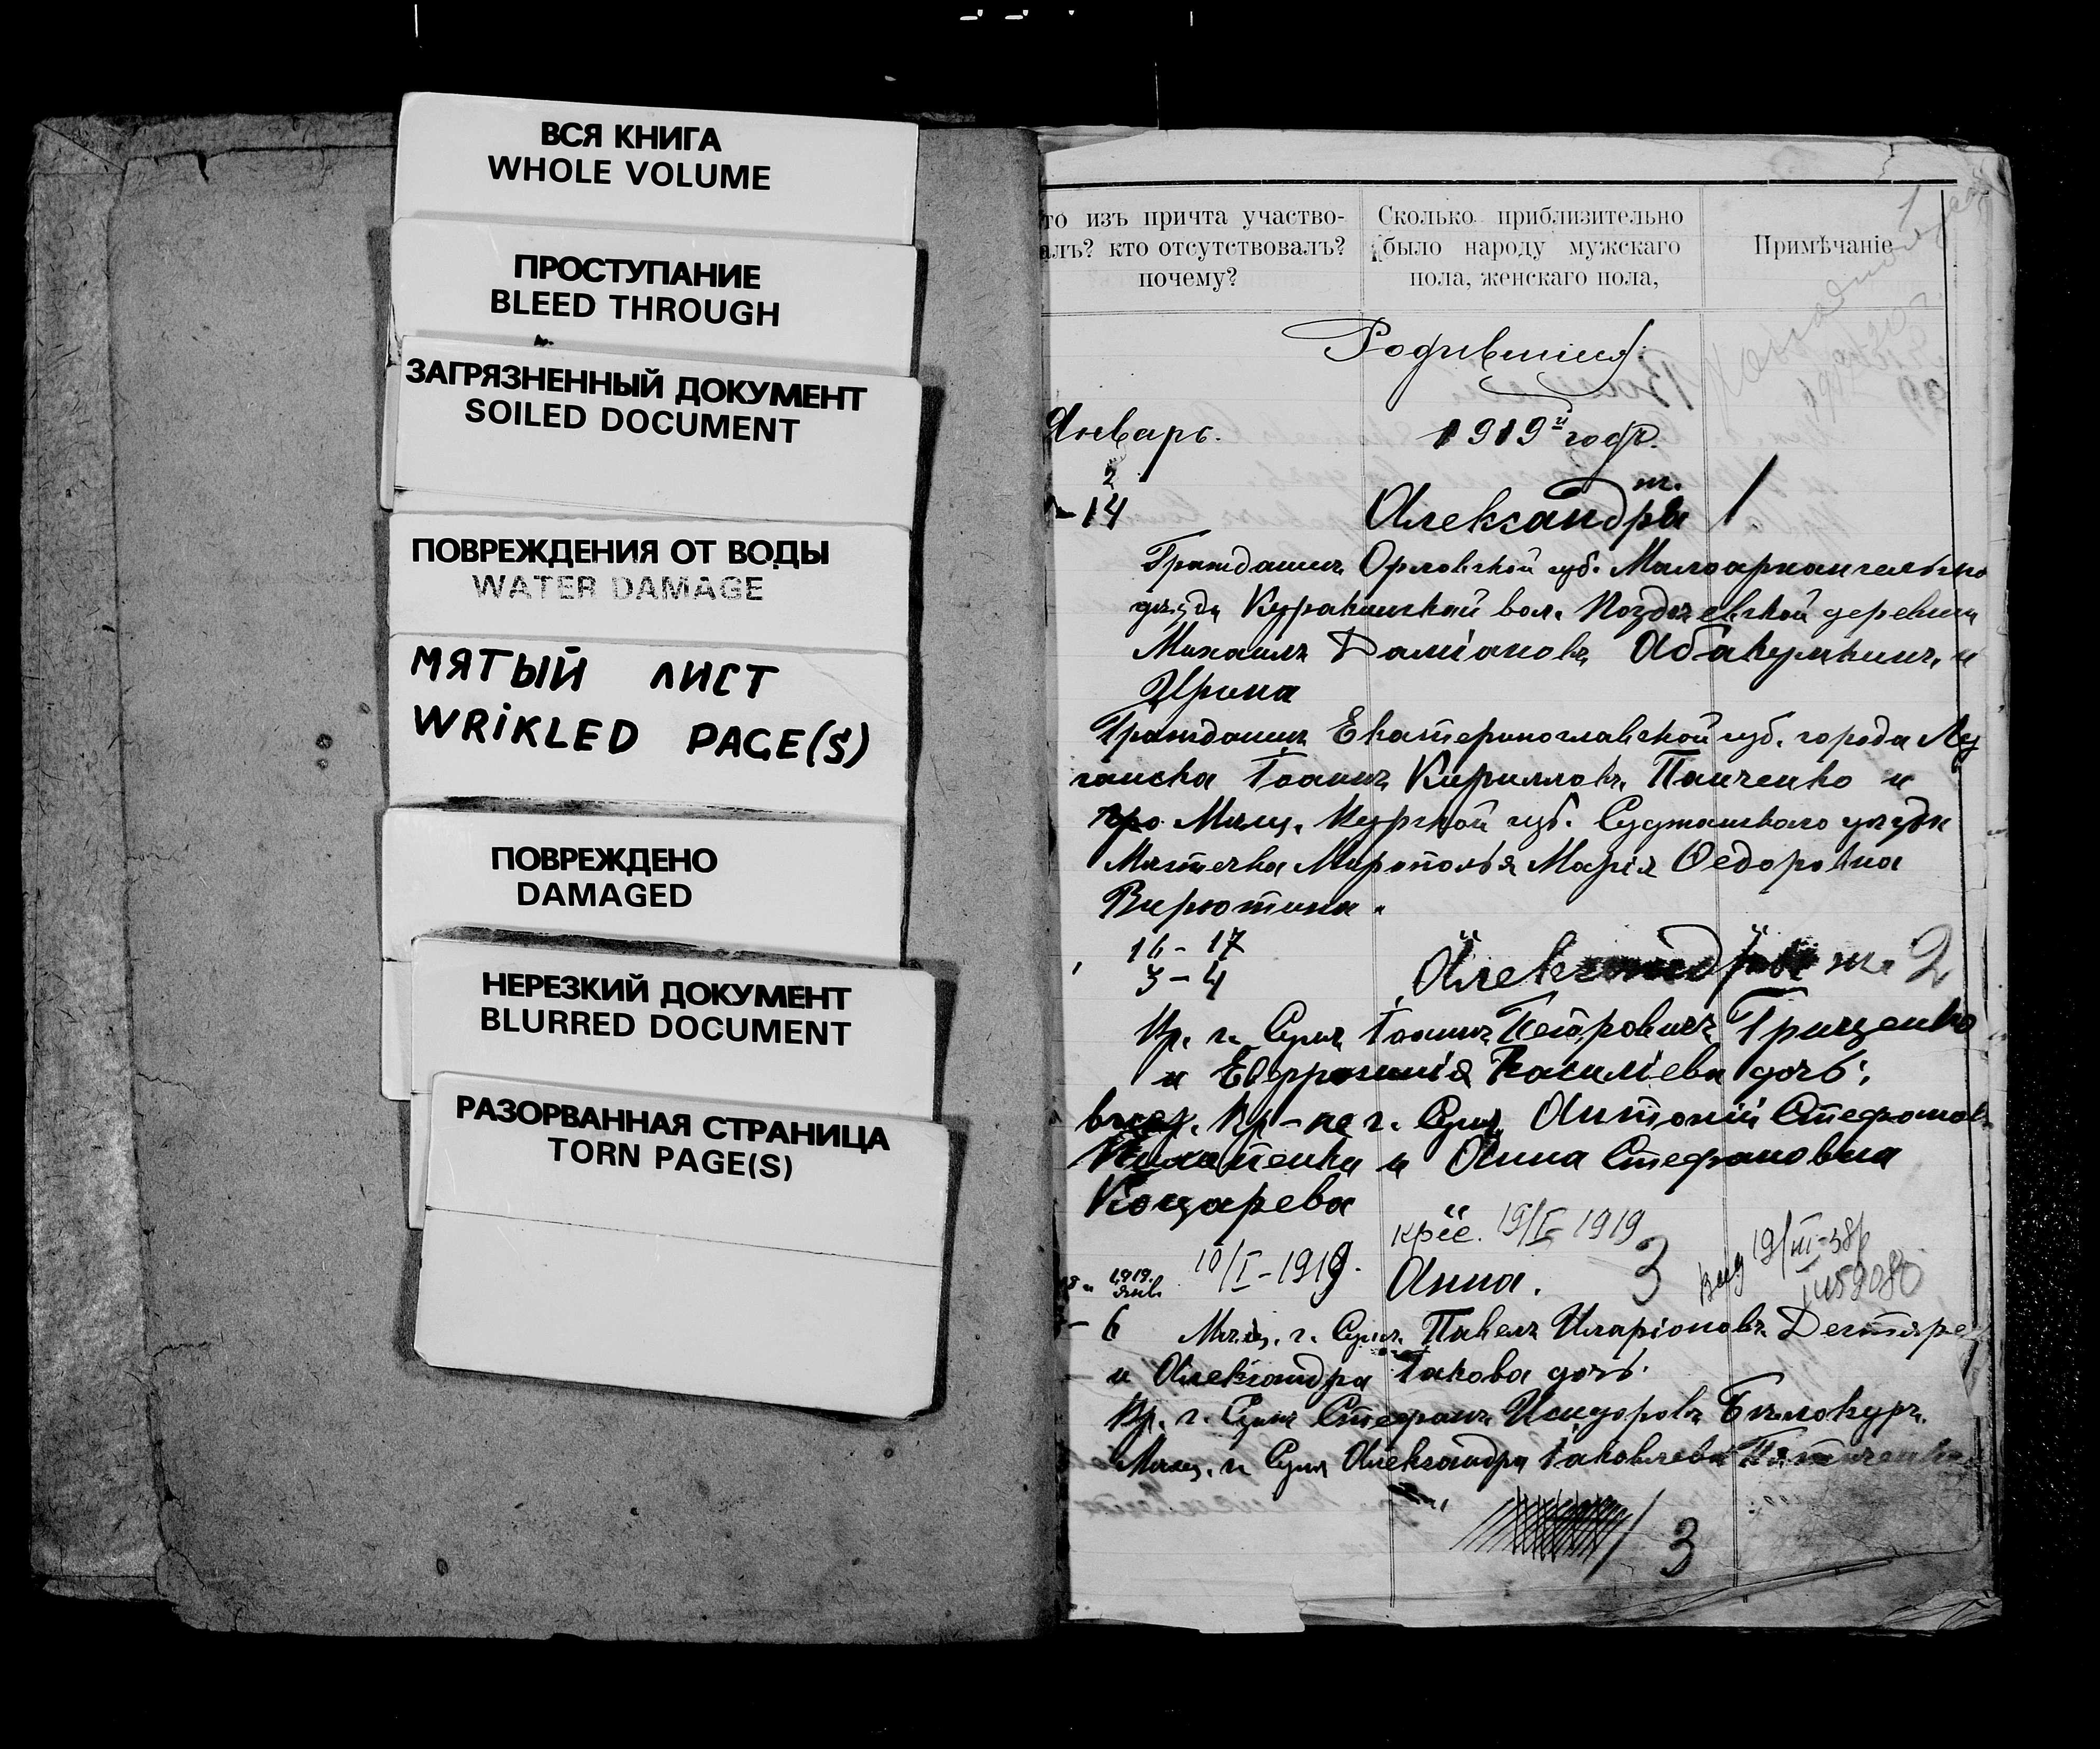 ВСЯ КНИГА
WHOLE VOLUME
ПРОСТУПАНИЕ
BLEED THROUGH
ЗАГРЯЗНЕННЫЙ ДОКУМЕНТ
SOILED DOCUMENT
ПОВРЕЖДЕНИЯ ОТ ВОДЫ
WATER DAMAGE
МЯТЫЙ ЛИСТ
WRIKLED PAGE(S)
ПОВРЕЖДЕНО
DAMAGED
НЕРЕЗКИЙ ДОКУМЕНТ
BLURRED DOCUMENT
РАЗОРВАННАЯ СТРАНИЦА
TORN PAGE(S)
то изъ причта участво-
алъ? кто отсутствовалъ?
почему?
Сколько приблизительно
было народу мужскаго
пола, женскаго пола,
Примѣчаніе
Родившіеся
Январь. 1919й годъ.
2
-14 Александра 1
Гражданинъ Орловской губ. Малоархангельско
уѣзда Куракинской вол. деревни
Михаилъ Даміановъ Абакумкинъ и
Ирина
Гражданинъ Екатеринославской губ. города Лу
ганска Іоаннъ Кирилловъ Панченко и
Мѣщ. Курской губ. Суджанскаго уѣзда
Мѣстечка Мирополья Марія Ѳедоровна
Вирютина.
16-17
3-4 ж. 2
Кр. г. Сумъ Іоаннъ Петровичъ Гриценко
и Евфросинія Василіева дочь;
Кр-не г. Сумъ Антоній Стефановъ
и Анна Стефановна
Концарева
10/I-1919. 19/I 1919
1919 Анна. 3 19/III-38
- 6 Мѣщ. г. Сумъ Павелъ Иларіоновъ
и Александра Іакова дочь.
Кр. г. Сумъ Стефанъ Исидоровъ Бѣлокуръ.
Мѣщ. г. Сумъ Александра Іаковлева
3